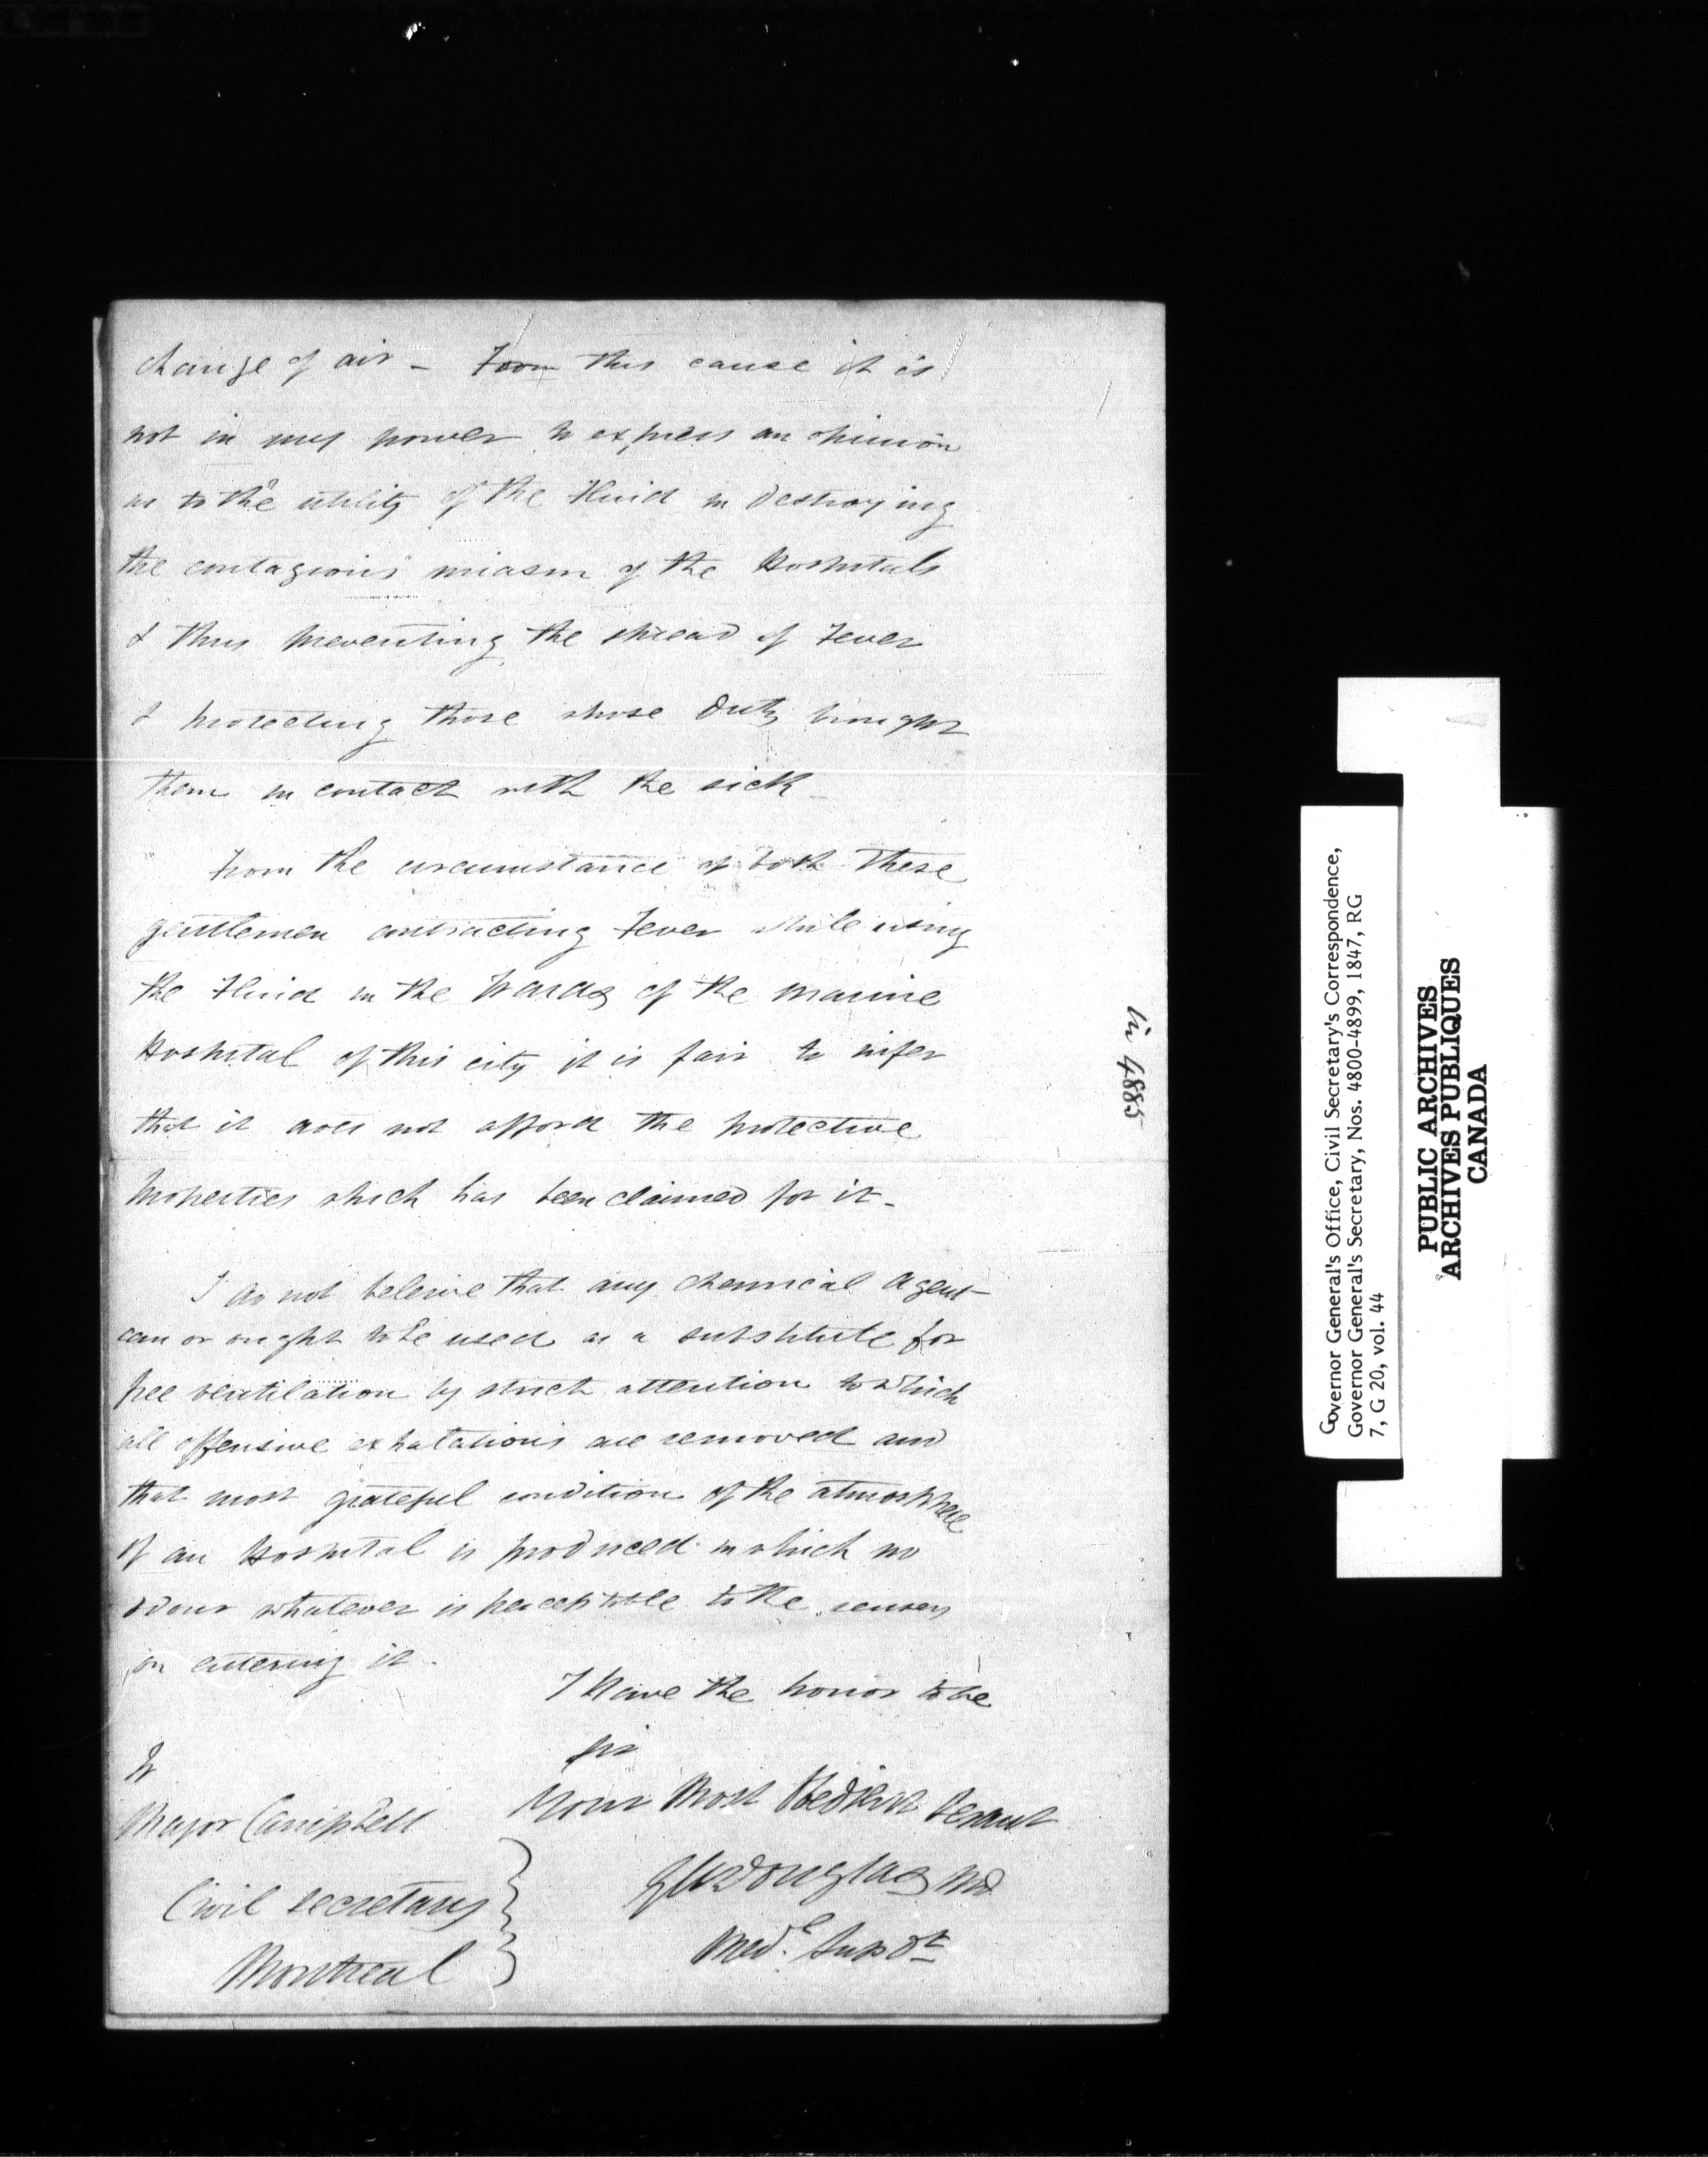 change of air - From this cause it is
not in my power to express an opinion
as to the utility of the Fluid in destroying
the contagious miasm of the Hospitals
& thus preventing the spread of Fever
& protecting those whose duty brought
them in contact with the sick
From the circumstance of both these
gentlemen contracting Fever while using
the Fluid in the Wards of the Marine
Hospital of this city it is fair to infer
that it does not afford the protective
properties which has been claimed for it -
I do not beleive that any chemical agent
can or ought to be used as a substitute for
free ventilation by strict attention to which
all offensive exhalations are removed and
that most grateful condition of the atmosphere
of an Hospital is produced in which no
odour whatever is perceptible to the senses
on entering it.
I have the honor to be
Sir
Your Most Obedient Servant
G M Douglas MD
Med.l Supdt
To
Major Campbell
Civil Secretary
Montreal
in 4885
Governor General's Office, Civil Secretary's Correspondence,
Governor General's Secretary, Nos. 4800-4899, 1847, RG
7, G 20, vol. 44
PUBLIC ARCHIVES
ARCHIVES PUBLIQUES
CANADA